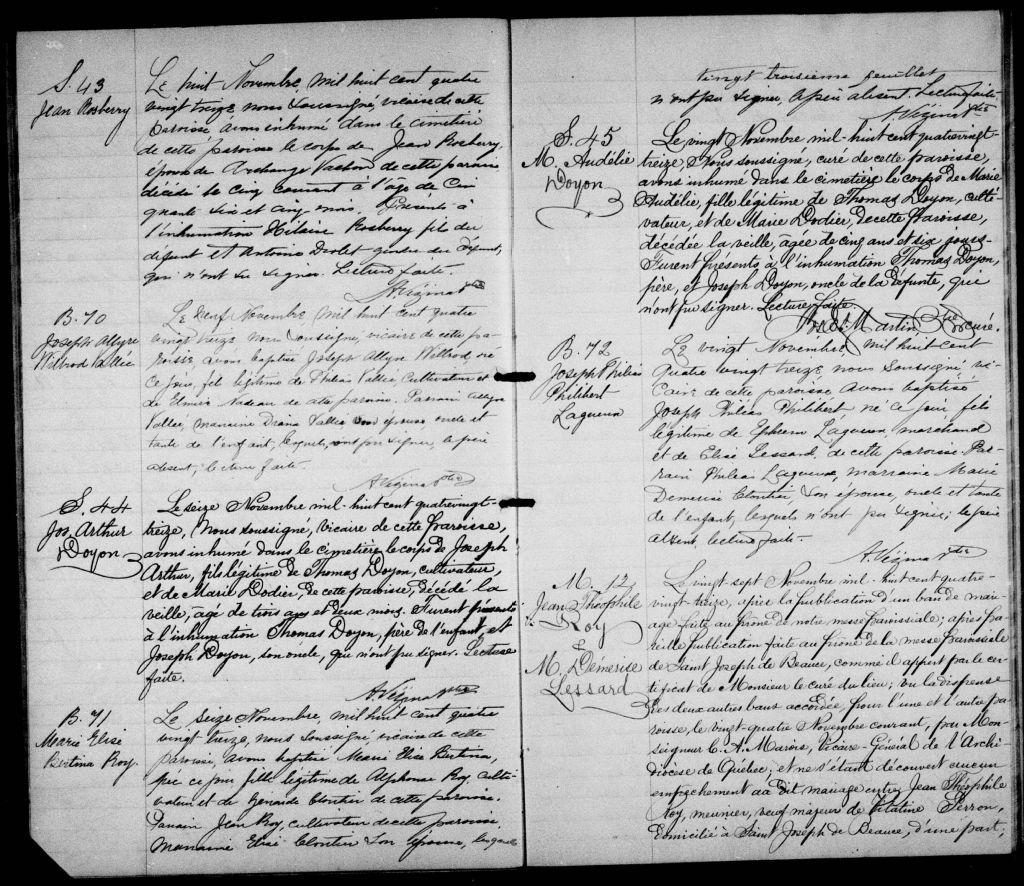 S. 43
Jean Rosberry
Le huit Novembre, mil huit cent quatre
vingt treize nous soussigné, vicaire de cette
paroisse avons inhumé dans le cimetière
de cette paroisse le corps de Jean Rosberry,
époux de Archange Vachon de cette paroisse
décédé le cinq courant à l'âge de cin
quante six et cinq mois. Présents à
l'inhumation Hilaire Rosberry fils du
défunt et Antoine Drolet gendre du défunt,
qui n'ont su signer. Lecture faite.
A. Vézina ptre
B. 70
Joseph Allyre
Wilbrod Vallée
Le neuf Novembre, mil huit cent quatre
vingt treize nous soussigné, vicaire de cette pa-
roisse avons baptisé Joseph Allyre Wilbrod né
ce jour, fils légitime de Philéas Vallée Cultivateur et
de Elmire Nadeau de cette paroisse. Parrain Allyre
Vallée, marraine Vallée son épouse oncle et
tante de l'enfant, lesquels n'ont pu signer, le père
absent, lecture faite.
A. Vézina ptre
S. 44
Jos. Arthur
Doyon
Le seize Novembre mil-huit cent quatrevingt-
treize, Nous soussigné, Vicaire de cette Paroisse,
avons inhumé dans le cimetière le corps de Joseph
Arthur, fils légitime de Thomas Doyon, cultivateur,
et de Marie Dodier, de cette paroisse, décédé la
veille, agé de trois ans et deux mois. Furent présents
à l'inhumation Thomas Doyon, père de l'enfant, et
Joseph Doyon, son oncle, qui n'ont pu signer. Lecture
faite.
A. Vézina ptre
B. 71
Marie Elise
Bertina Roy.
Le seize Novembre, mil huit cent quatre
vingt treize, nous soussigné vicaire de cette
paroisse, avons baptisé Marie Elise Bertina,
née ce jour fille légitime de Alphonse Roy, culti-
vateur et de Cloutier de cette paroisse.
Parrain Jean Roy, cultivateur de cette paroisse,
Marraine Elise Cloutier son épouse, lesquels
vingt troisième feuillet
n'ont pu signer, le père absent. Lecture faite.
A. Vézina Ptre
S. 45
M. Audélie
Doyon
Le vingt Novembre mil-huit cent quatrevingt-
treize, Nous soussigné, curé de cette paroisse,
avons inhumé dans le cimetière le corps de Marie
Audélie, fille légitime de Thomas Doyon, culti-
vateur, et de Marie Dodier, de cette Paroisse,
décédée la veille, âgée de cinq ans et six jours.
Furent présents à l'inhumation Thomas Doyon,
père, et Joseph Doyon, oncle de la défunte, qui
n'ont pu signer. Lecture faite.
Martin Ptre curé.
B. 72
Joseph Philéas
Philibert
Lagueux
Le vingt Novembre, mil huit cent
quatre vingt treize nous soussigné vi-
caire de cette paroisse avons baptisé
Joseph Philéas Philibert, né ce jour fils
légitime de Ephrem Lagueux, marchand
et de Elise Lessard, de cette paroisse. Par-
rain Philéas Lagueux, marraine Marie
Démerise Cloutier, son épouse, oncle et tante
de l'enfant, lesquels n'ont pu signer, le père
absent, lecture faite.
A. Vézina ptre
M. 12
Jean Théophile
Roy
&
M. Démerise
Lessard
Le vingt sept Novembre mil-huit cent quatre-
vingt-treize, après la publication d'un ban de mari-
age faite au prône de notre messe paroissiale; après pa-
reille publication faite au prône de la messe paroissiale
de Saint Joseph de Beauce, comme il appert par le cer-
tificat de Monsieur le curé du lieu; vu la dispense
des deux autres bans accordée, pour l'une et l'autre pa-
roisse, le vingt-quatre Novembre courant, par Mon-
seigneur C. A. Marois, Vicaire-Général de l'Archi-
diocèse de Québec; et ne s'étant découvert aucun
empêchement au dit mariage entre Jean Théophile
Roy, meunier, veuf majeur de Vitaline Perron,
domicilié à Saint Joseph de Beauce, d'une part;